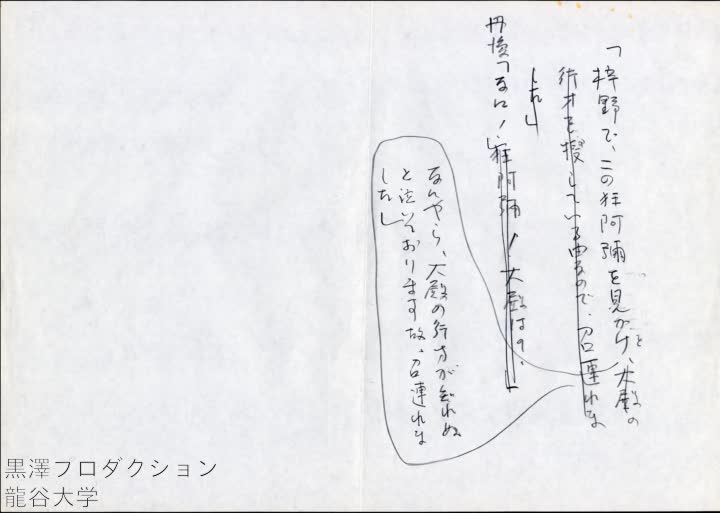 「梓野で、この狂阿彌を見かけ、大殿の
行方を捜している由なので、召連れま
した」
丹後「なに！狂阿彌！大殿は？」
なんやら、大殿の行方が知れぬ
と泣いております故、召連れま
した」
黒澤プロダクション
龍谷大学